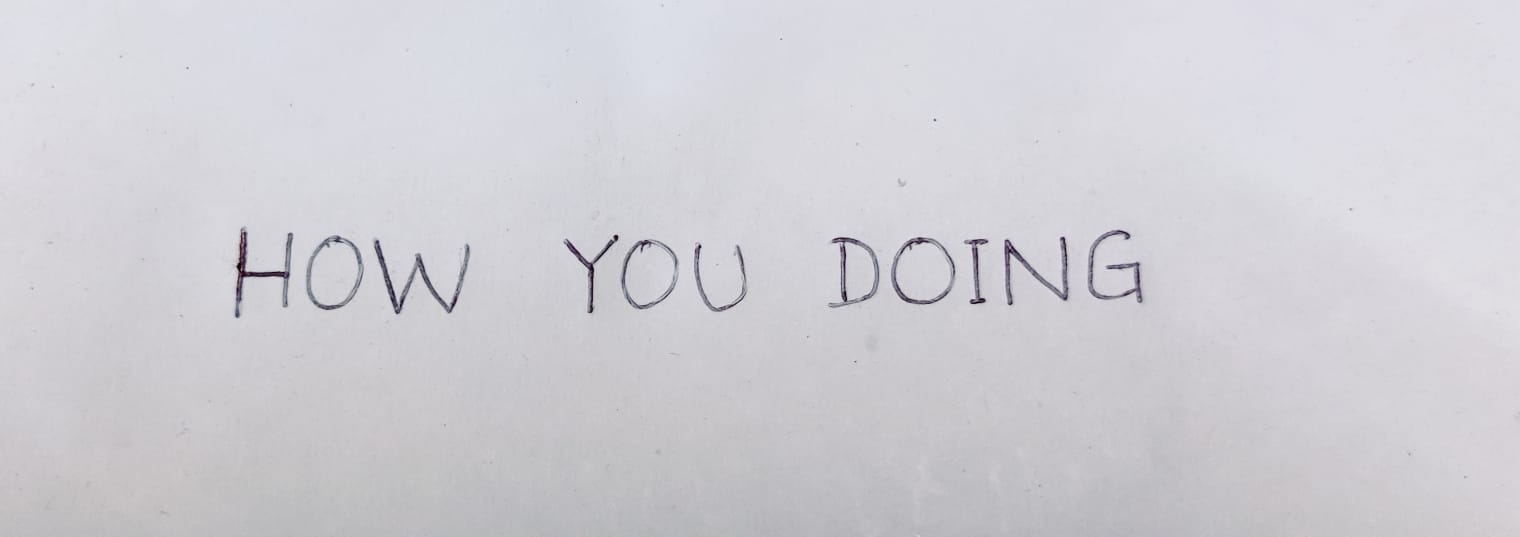 HOW YOU DOING